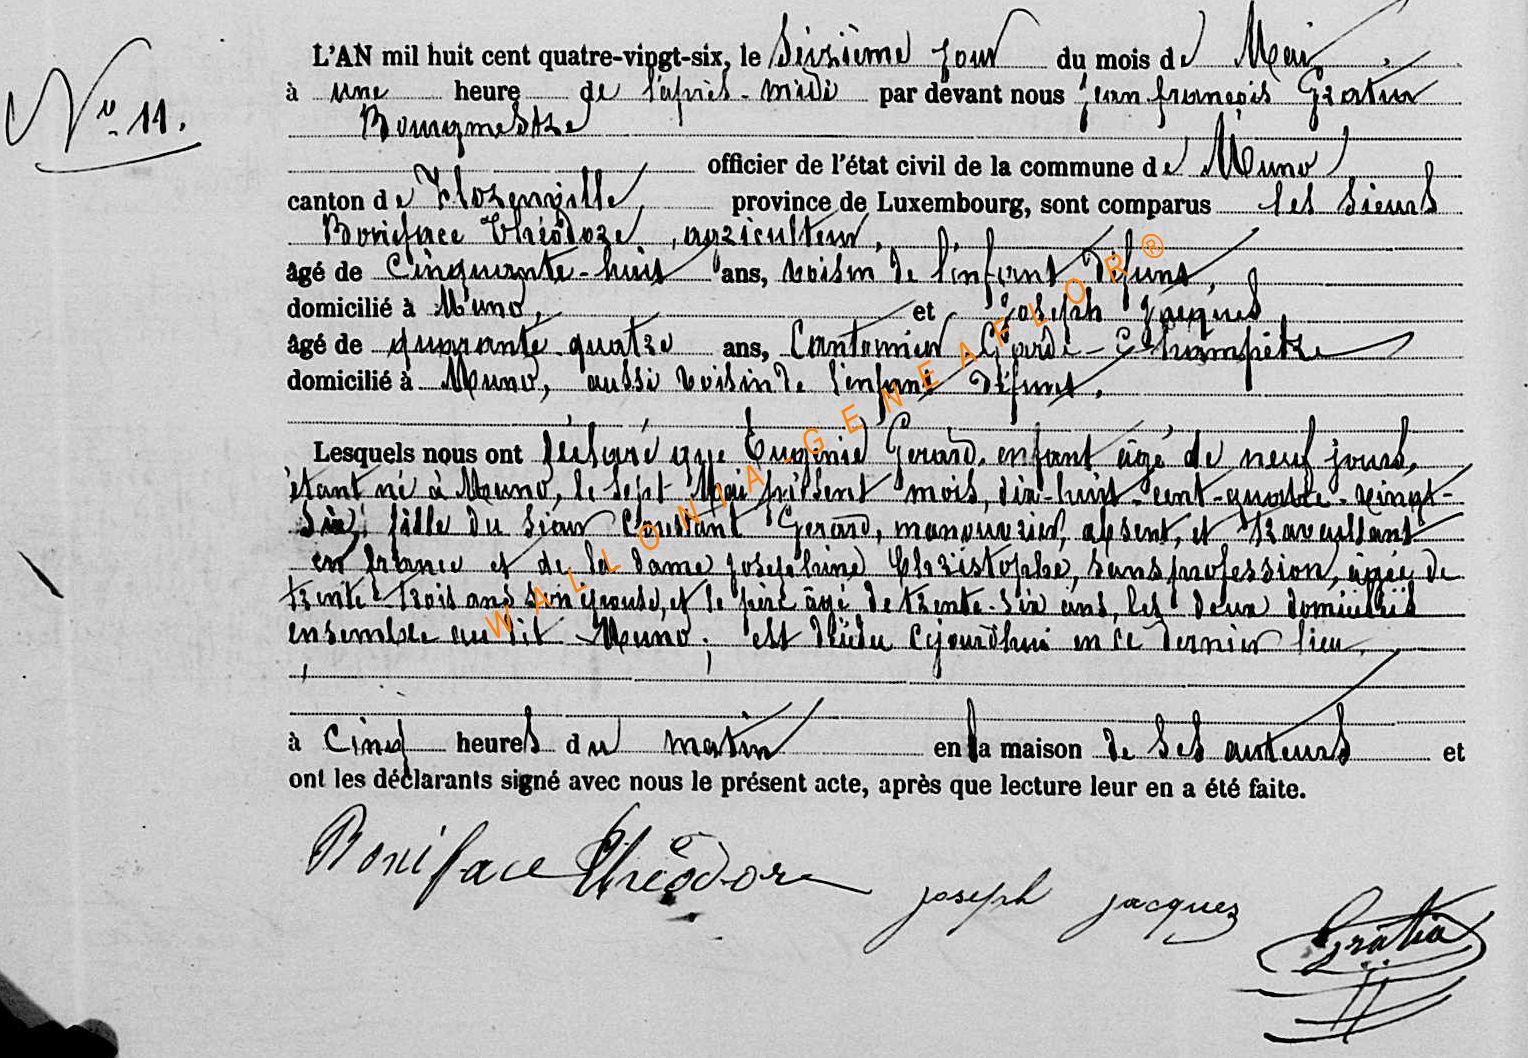 N° 11.
L'AN mil huit cent quatre-vingt-six, le seizième jour du mois de Mai,
à une heure de l'après-midi par devant nous Jean françois Gratia
Bourgmestre
officier de l'état civil de la commune de Muno
canton de Florenville, province de Luxembourg, sont comparus les sieurs
Boniface Théodore, agriculteur,
âgé de cinquante-huit ans, voisin de l'enfant défunt,
domicilié à Muno, et Joseph Jacques
âgé de quarante quatre ans, Cantonnier Garde-Champêtre
domicilié à Muno, aussi voisin de l'enfant défunt.
Lesquels nous ont déclaré que Eugénie Gerard, enfant âgé de neuf jours,
étant né à Muno, le sept Mai présent mois, dix-huit-cent-quatre-vingt-
six, fille du sieur Constant Gerard, manouvrier, absent, et travaillant
en france et de la dame Joséphine Christophe, sans profession, âgée de
trente-trois ans son épouse, et le père âgé de trente-six ans, les deux domiciliés
ensemble au dit Muno; est décédée cejourd'hui en ce dernier lieu,
à cinq heures du matin en la maison de ses auteurs et
ont les déclarants signé avec nous le présent acte, après que lecture leur en a été faite.
Boniface Théodore
joseph jacques
Gratia
WALLONIA-GENEAFLOR®